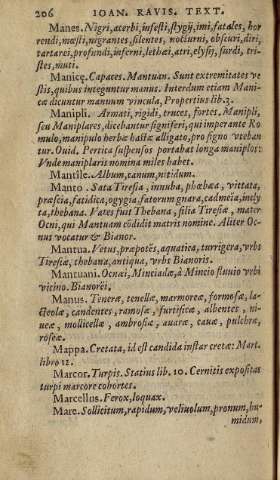 206 IOAN. RAVIS. TEXT.
Manes. Nigri, acerbi, infesti, stygij, imi, fatales, hor
rendi, mœsti, nigrantes, silentes, nocturni, obscuri, diri,
tartarei, profundi, inferni, lethæi, atri, elysij, surdi, tri-
stes, muti.
Manicę. Capaces. Mantuan. Sunt extremitates ve
stis, quibus integuntur manus. Interdum etiam Mani-
ca dicuntur manuum vincula, Propertius lib. 3.
Manipli. Armati, rigidi, truces, fortes. Manipli,
seu Maniplares, dicebantur signiferi, qui imperante Ro
mulo, manipulo herbæ hastæ alligato, pro signo vteban
tur. Ouid. Pertica suspensos portabat longa maniplos:
Vnde maniplaris nomina miles habet.
Mantile. Album, canum, nitidum.
Manto. Sata Tiresia, innuba, phœbæa, vittata,
præscia, fatidica, ogygia, fatorum gnara, cadmeia, incly
ta, thebana. Vates fuit Thebana, filia Tiresiæ, mater
Ocni, qui Mantuam cōdidit matris nomine. Aliter Oc-
nus vocatur & Bianor.
Mantua. Vetus, præpotēs, aquatica, turrigera, vrbs
Tiresiæ, thebana, antiqua, vrbs Bianoris.
Mantuani. Ocnæi, Minciadæ, à Mincio fluuio vrbi
vicino. Bianorei.
Manus. Teneræ, tenellæ, marmoreæ, formosæ, la-
cteolæ, candentes, ramosæ, furtificæ, albentes, ni-
ueæ, mollicellæ, ambrosiæ, auaræ, cauæ, pulchræ,
roseæ.
Mappa. Cretata, id est candida instar cretæ: Mart.
libro 12.
Marcor. Turpis. Statius lib. 10. Cernitis expositas
turpi marcore cohortes.
Marcellus. Ferox, loquax.
Mare. Sollicitum, rapidum, veliuolum, pronum, hu-
midum,